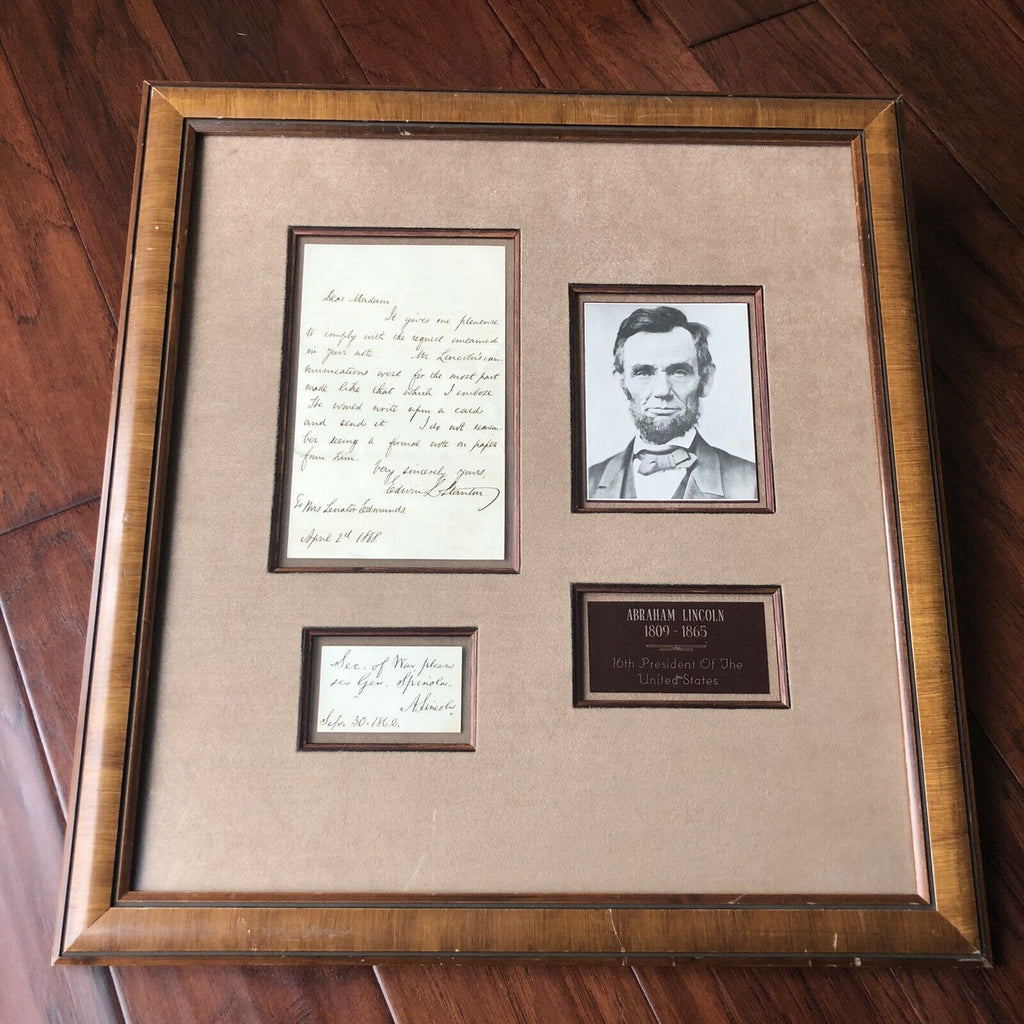 Dear Madam,
It gives me pleasure
to comply with the request contained
in your note. Mr Lincoln's com-
munications were for the most part
made like that which I enclose
He would write upon a card
and send it. I do not remem-
ber seeing a formal note on paper
from him.
Very sincerely yours,
Edwin L Stanton
To Mrs Senator Edmunds
April 2d 1868
Sec. of War, please
see Gen. Spinola.
A. Lincoln
Sep. 30. 1862.
ABRAHAM LINCOLN
1809 ~ 1865
16th President Of The
United States